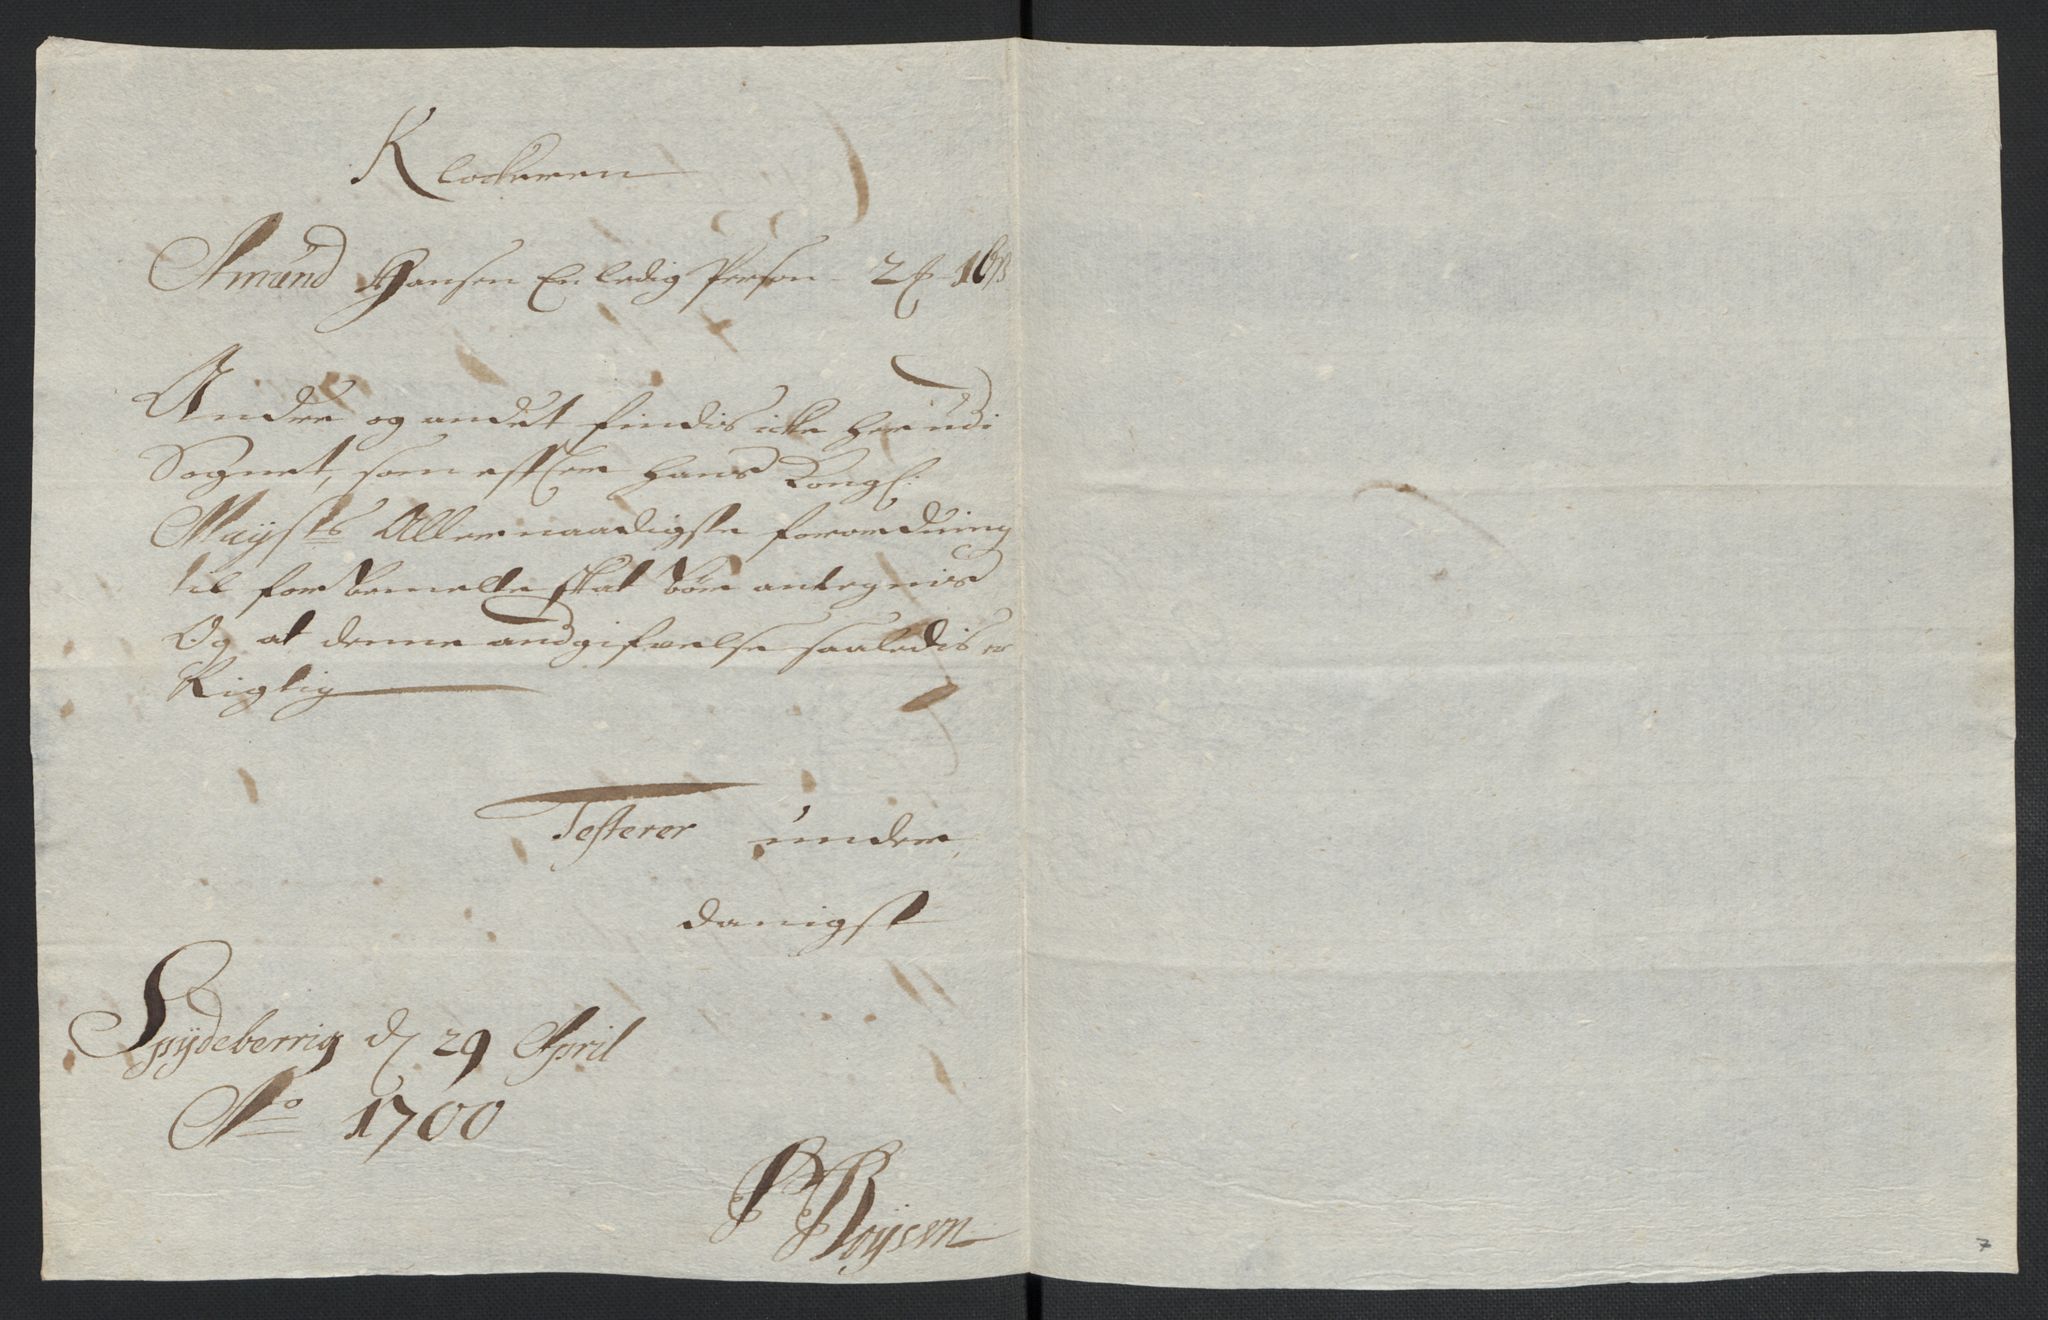 Klockeren
Amund Hansen En ledig Person - 2 16 ß
Andre og andet findis icke her udi
Sognet, som efter hans Kongl:
Mayts Allernaadigste forordning
til forbemelte skat bør antegnis
Og at denne andgifvelse saaledis er
Rigtig
Testerer under
danigst
Spydeberrig d 29 April
Ao 1700
P Boysen
7